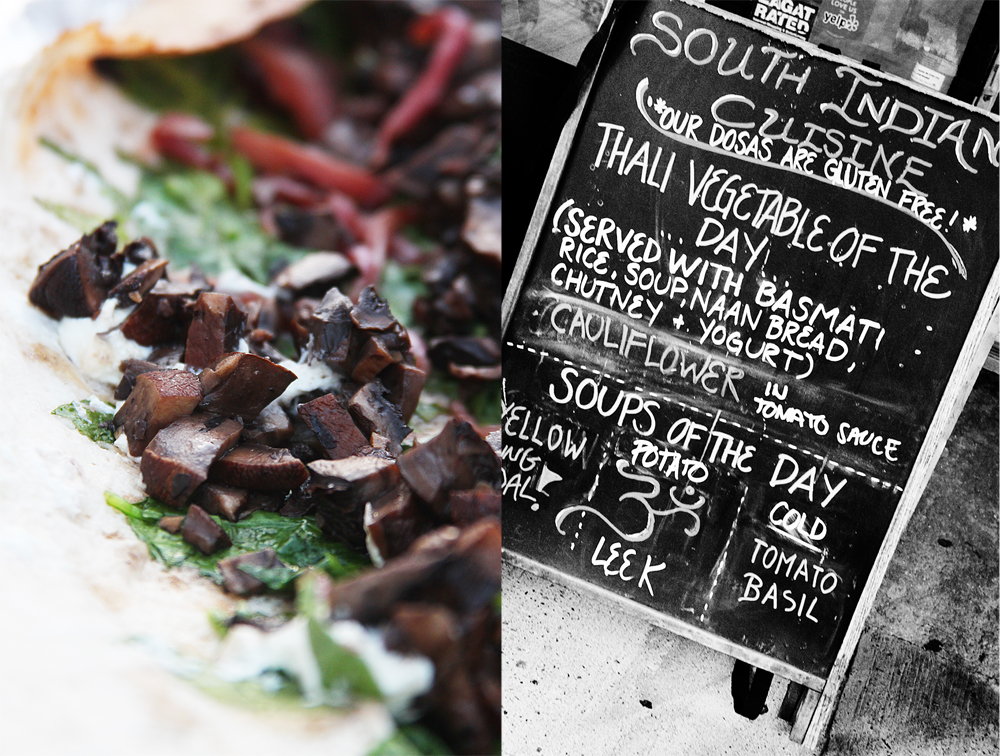 ZAGAT
RATED
PEOPLE
LOVE US
yelp
SOUTH INDIAN
CUISINE
*OUR DOSAS ARE GLUTEN FREE!*
THALI VEGETABLE OF THE
DAY
(SERVED WITH BASMATI
RICE, SOUP, NAAN BREAD,
CHUTNEY + YOGURT)
CAULIFLOWER IN
TOMATO SAUCE
SOUPS OF THE DAY
YELLOW
NG
DAL!
POTATO
ॐ
LEEK
COLD
TOMATO
BASIL